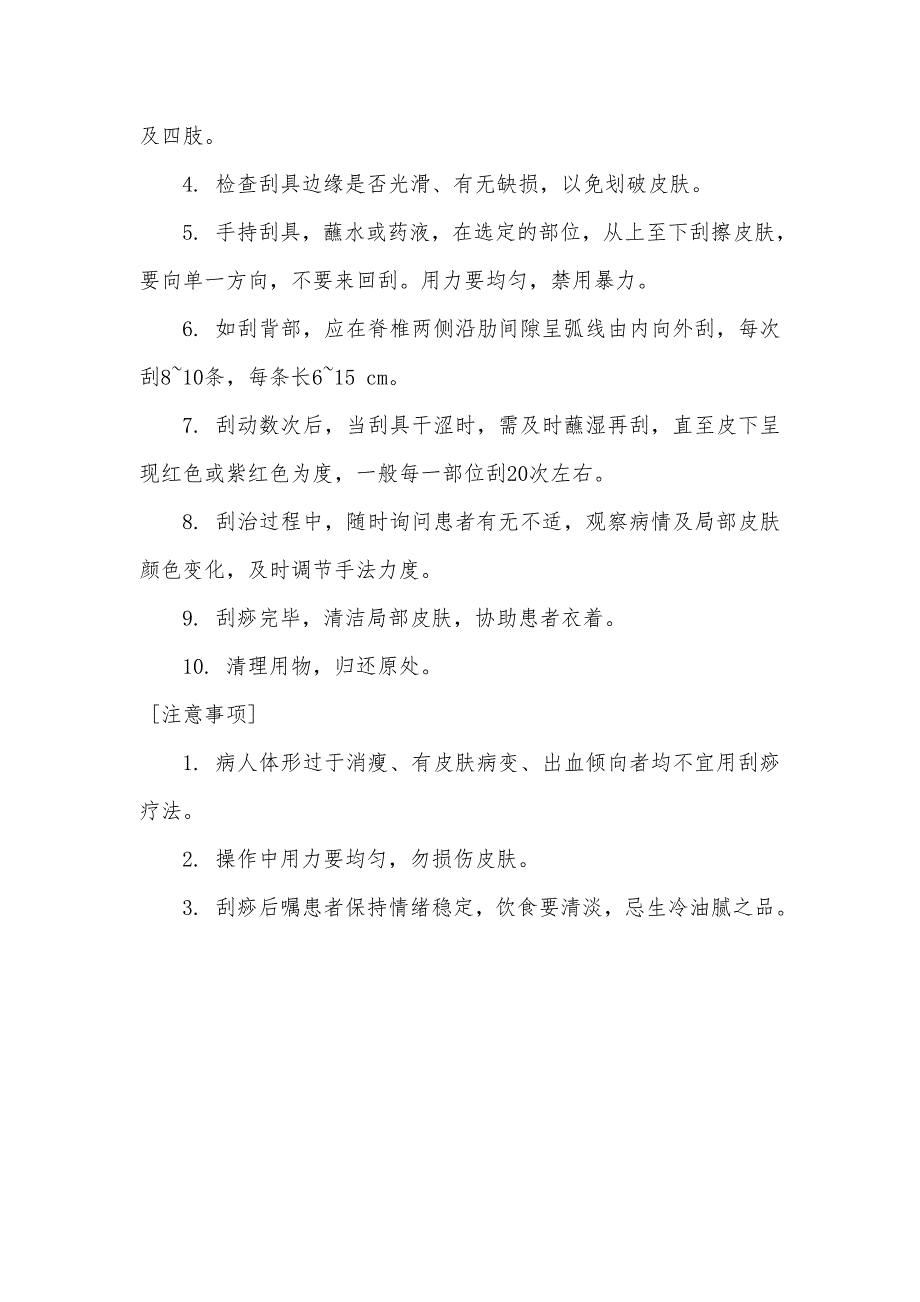 及四肢。
4. 检查刮具边缘是否光滑、有无缺损，以免划破皮肤。
5. 手持刮具，蘸水或药液，在选定的部位，从上至下刮擦皮肤，
要向单一方向，不要来回刮。用力要均匀，禁用暴力。
6. 如刮背部，应在脊椎两侧沿肋间隙呈弧线由内向外刮，每次
刮8~10条，每条长6~15 cm。
7. 刮动数次后，当刮具干涩时，需及时蘸湿再刮，直至皮下呈
现红色或紫红色为度，一般每一部位刮20次左右。
8. 刮治过程中，随时询问患者有无不适，观察病情及局部皮肤
颜色变化，及时调节手法力度。
9. 刮痧完毕，清洁局部皮肤，协助患者衣着。
10. 清理用物，归还原处。
[注意事项]
1. 病人体形过于消瘦、有皮肤病变、出血倾向者均不宜用刮痧
疗法。
2. 操作中用力要均匀，勿损伤皮肤。
3. 刮痧后嘱患者保持情绪稳定，饮食要清淡，忌生冷油腻之品。